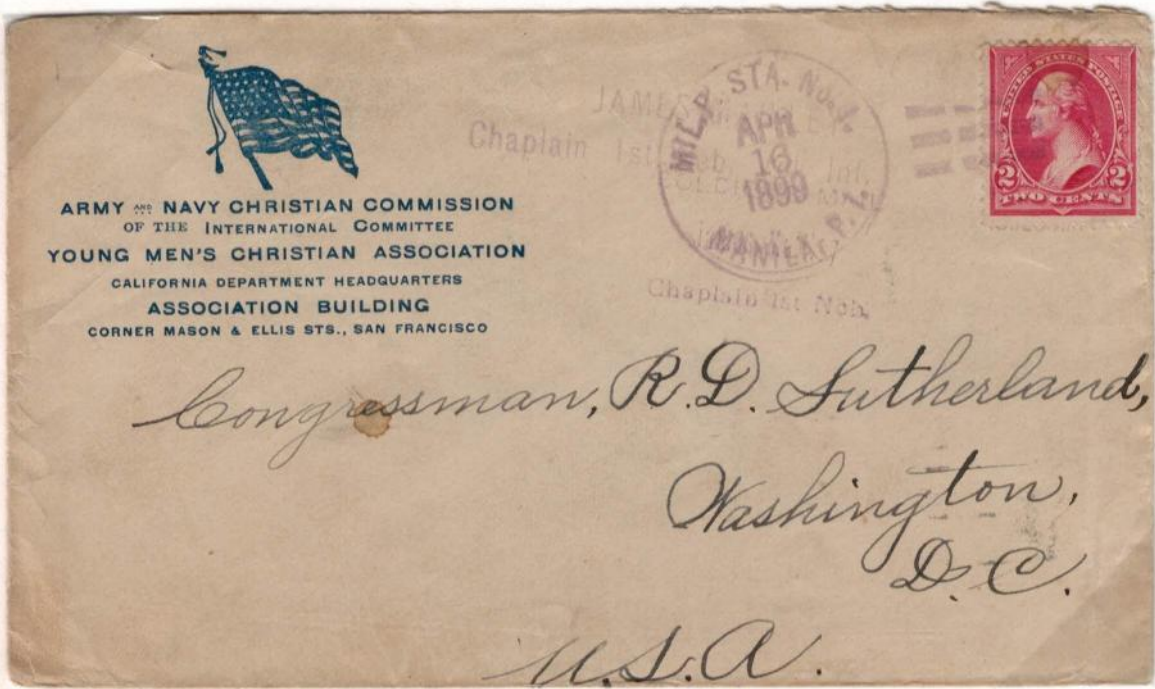 ARMY AND NAVY CHRISTIAN COMMISSION
OF THE INTERNATIONAL COMMITTEE
YOUNG MEN'S CHRISTIAN ASSOCIATION
CALIFORNIA DEPARTMENT HEADQUARTERS
ASSOCIATION BUILDING
CORNER MASON & ELLIS STS., SAN FRANCISCO
JAMES
Chaplain 1st Neb. Inf.
MIL. P. STA. No. 1.
APR
16
1899
MANILA, P.I.
Chaplain 1st Neb.
UNITED STATES POSTAGE
2 2
TWO CENTS
Congressman, R.D. Sutherland,
Washington,
D.C.
U.S.A.